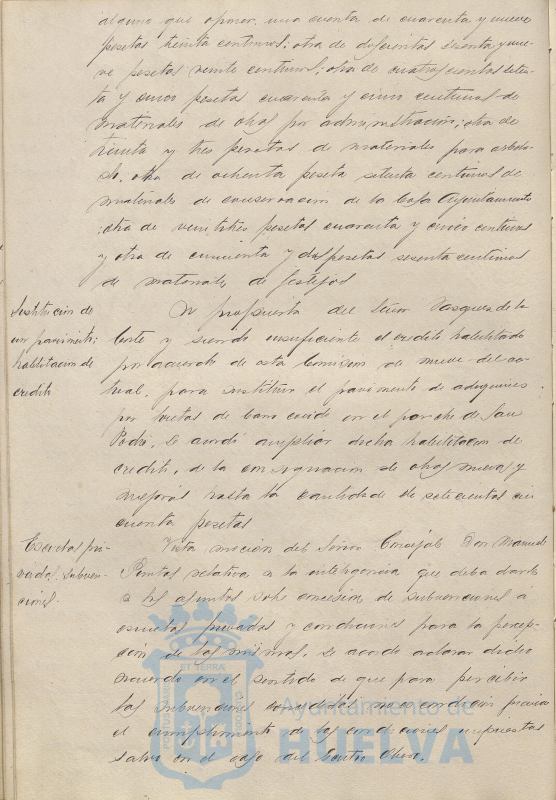 alguno que oponer, una cuenta de cuarenta y nueve
pesetas treinta centimos; otra de doscientas sesenta y nue-
ve pesetas veinte centimos; otra de cuatrocientas seten-
ta y cinco pesetas cuarenta y cinco centimos de
materiales de obras por administración; otra de
treinta y tres pesetas de materiales para arbola-
do, otra de ochenta peseta setenta centimos de
materiales de conservacion de la Casa Ayuntamiento
; otra de veintitres pesetas cuarenta y cinco centimos
y otra de cincuenta y dos pesetas sesenta centimos
de materiales de festejos
Sustitución de
un pavimento;
habilitacion de
credito
A propuesta del Señor Vasquez de la
Corte y siendo insuficiente el credito habilitado
por acuerdo de esta Comision de nueve del ac-
tual, para sustituir el pavimento de adoquines
por losetas de barro cocido en el porche de San
Pedro, se acordó ampliar dicha habilitacion de
credito, de la consignacion de obras nuevas y
mejoras hasta la cantidad de setecientas cin
cuenta pesetas
Escuelas pri-
vadas. subven-
ciones.
Vista mocion del Señor Concejal Don Manuel
relativa a la inteligencia que deba darse
a los asuntos sobre concesión de subvenciones á
escuelas privadas y condiciones para la percep-
ción de las mismas, se acordó aclarar dicho
acuerdo en el sentido de que para percibir
las subvenciones concedidas precisa
el cumplimiento de las condiciones impuestas
salvo en el caso del Centro Obrero.
PORTUS MARIS
ET TERRAE
CUSTODIA
Ayuntamiento de
HUELVA